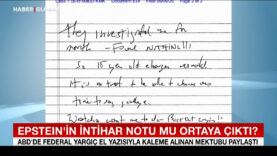 HABER GLOBAL
They investigated me for
month – Found NOTHING!!!
So 15 year old charges
It is a treat to be able to choose
time to say goodbye.
Watcha want me to do – Burst
EPSTEIN'İN İNTİHAR NOTU MU ORTAYA ÇIKTI?
ABD'DE FEDERAL YARGIÇ EL YAZISIYLA KALEME ALINAN MEKTUBU PAYLAŞTI